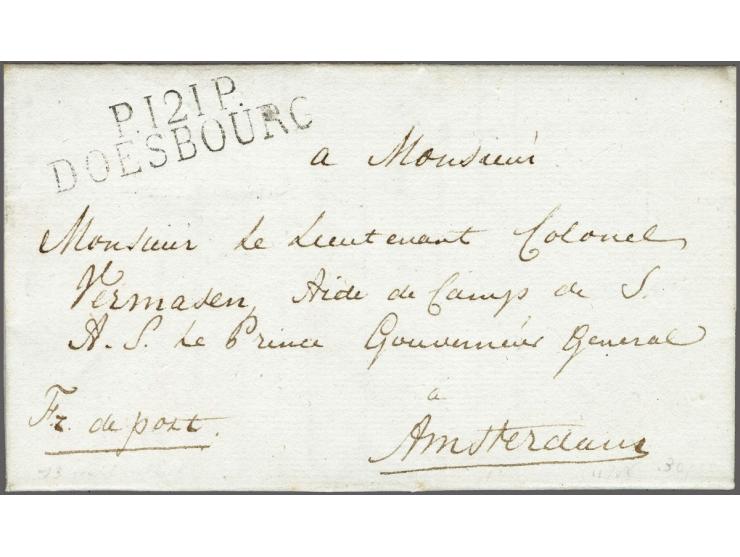 P.121P.
DOESBOURG
a Monsieur
Monsieur Le Lieutenant Colonel
Vermasen, Aide de Camp de S.
A. S. Le Prince Gouverneur General
a
Fr. de port.
Amsterdam